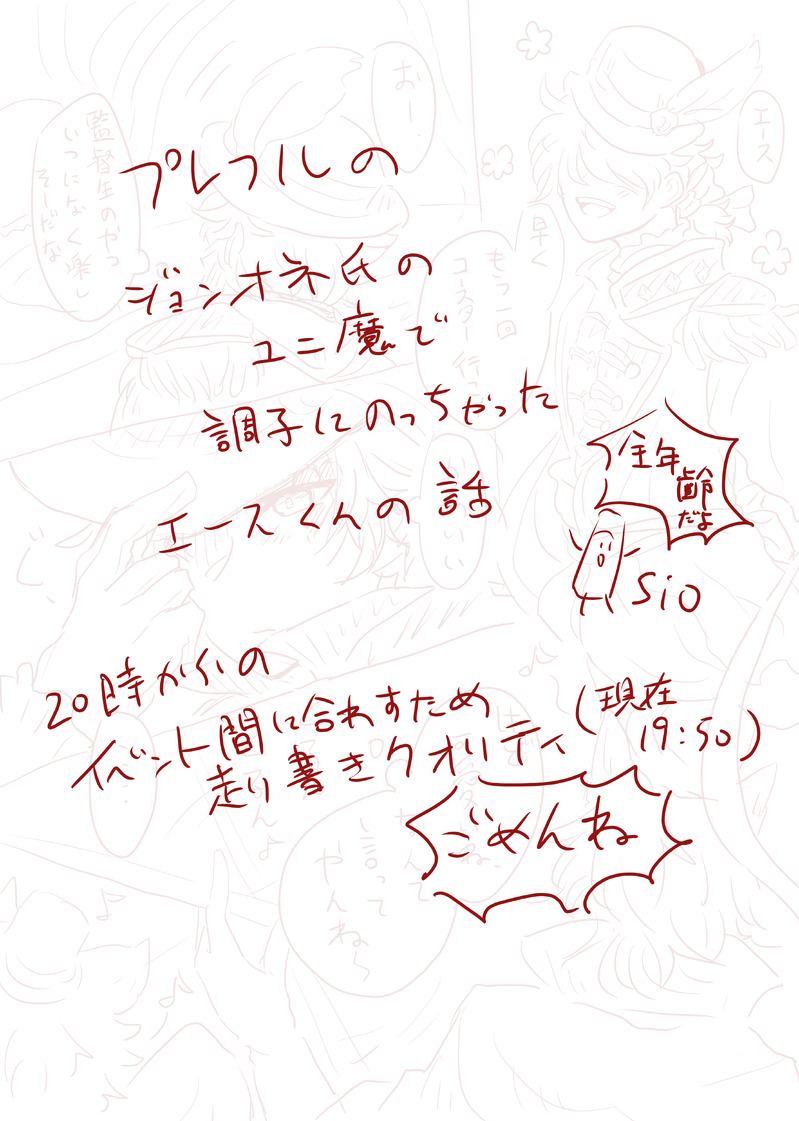 プレフルの
ジョンオネ氏の
ユニ魔で
調子にのっちゃった
エースくんの話
全年
齢
だよ
sio
20時からの
イベント間に合わすため
走り書きクオリティ
(現在
19:50)
ごめんね
エース
早く
もう一回
コースター行
おー
監督生のやつ
いつになく楽し
そーだな
言って
やんね〜